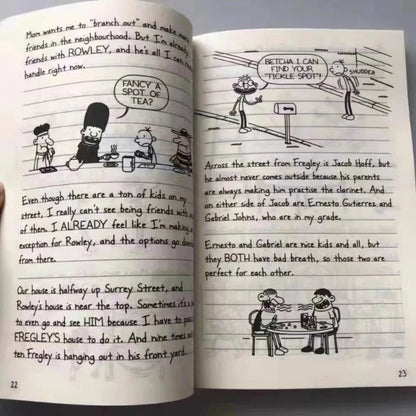 Mom wants me to "branch out" and make more
friends in the neighbourhood. But I'm already
friends with ROWLEY, and he's all I can
handle right now.
FANCY A
SPOT OF
TEA?
Even though there are a ton of kids on my
street, I really can't see being friends with
of them. I ALREADY feel like I'm making
exception for Rowley, and the options go down
from there.
Our house is halfway up Surrey Street, and
Rowley's house is near the top. Sometimes it's
to even go and see HIM because I have to pass
FREGLEY'S house to do it. And nine times
ten Fregley is hanging out in his front yard.
22
BETCHA I CAN
FIND YOUR
"FICKLE SPOT"!
SHUDDER
Across the street from Fregley is Jacob Hoff, but
he almost never comes outside because his parents
are always making him practise the clarinet. And
on either side of Jacob are Ernesto Gutierrez and
Gabriel Johns, who are in my grade.
Ernesto and Gabriel are nice kids and all, but
they BOTH have bad breath, so those two are
perfect for each other.
23